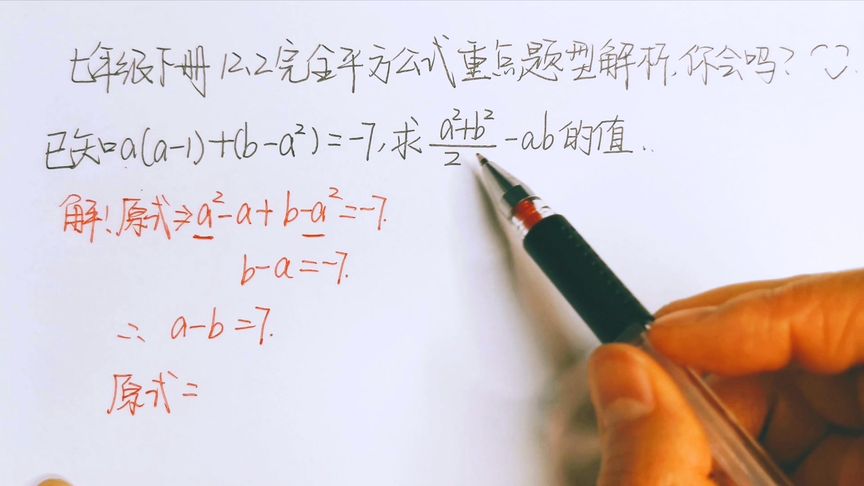 七年级下册12.2完全平方公式重点题型解析,你会吗?
已知a(a-1)+(b-a²)=-7,求(a²+b²)/2-ab的值..
解:原式⇒a²-a+b-a²=-7.
b-a=-7.
∴a-b=7.
原式=